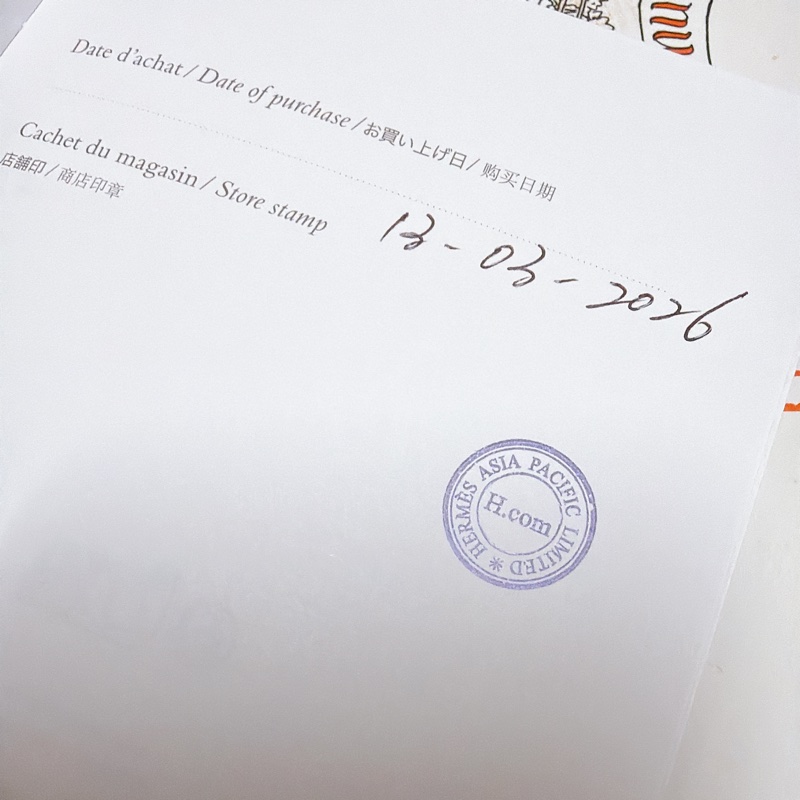 Date d'achat / Date of purchase / お買い上げ日 / 购买日期
Cachet du magasin / Store stamp
店舗印 / 商店印章
13-03-2026
HERMÈS ASIA PACIFIC LIMITED *
H.com